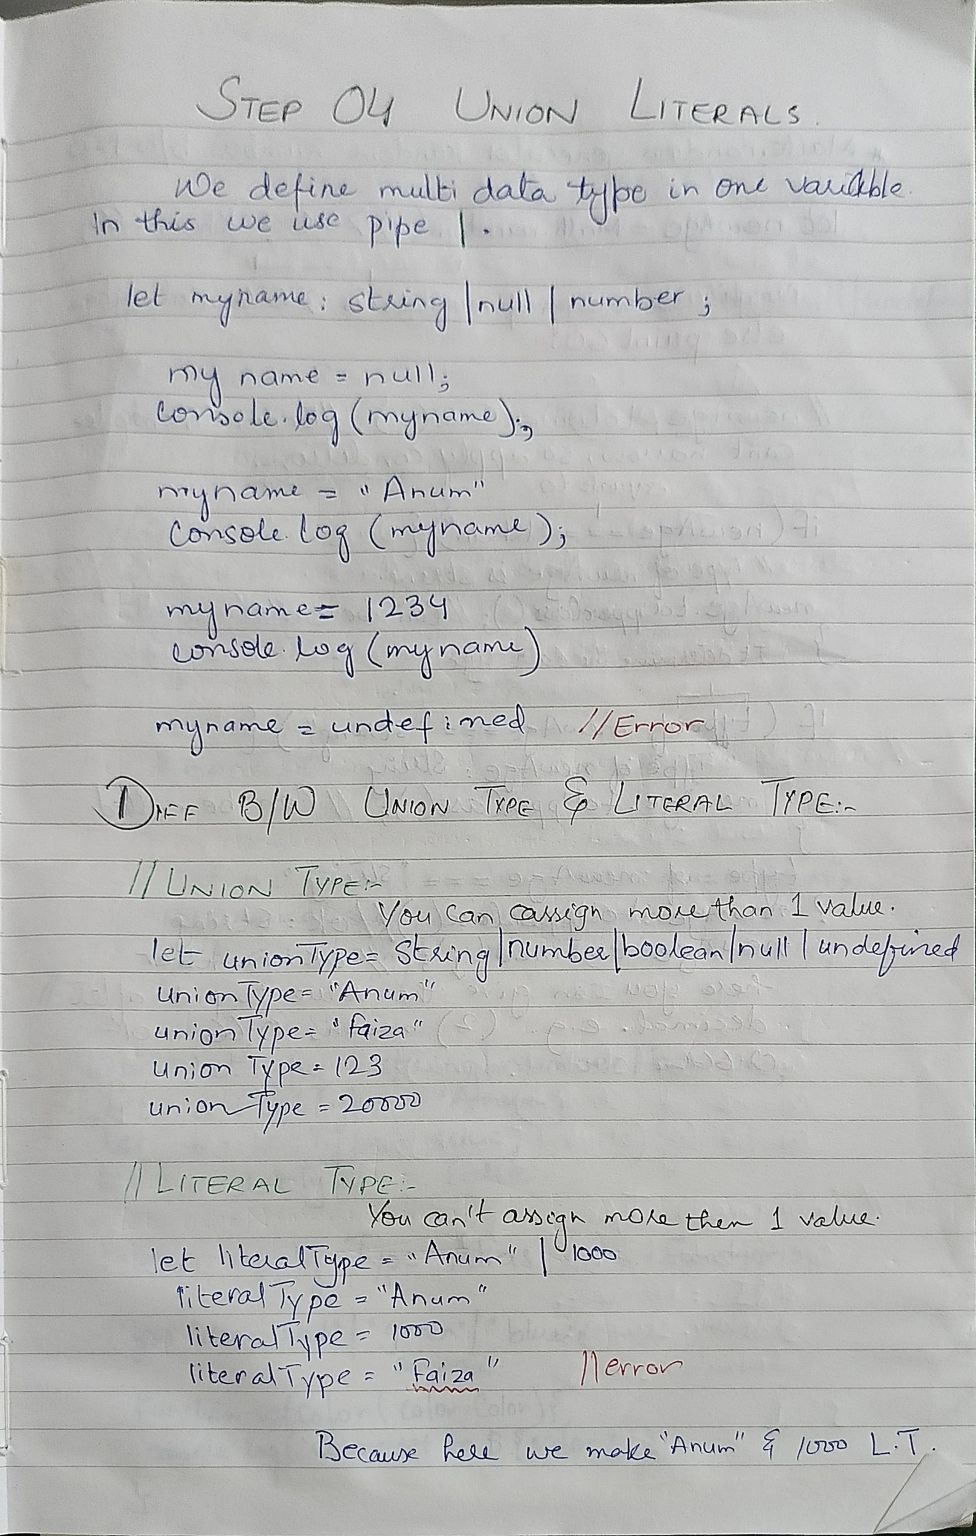 STEP 04 UNION LITERALS.
We define multi data type in one variable.
In this we use pipe |.
let myname: string |null | number ;
my name = null;
console.log (myname);,
myname = "Anum"
console.log (myname);
myname= 1234
console.log (myname)
myname = undefined //Error
① DIFF B/W UNION TYPE & LITERAL TYPE:-
// UNION TYPE:-
You can cassign more than 1 value.
let unionType= String|number|boolean|null | undefined
unionType= "Anum"
unionType= "faiza"
union Type= 123
unionType = 20000
// LITERAL TYPE:-
You can't assign more then 1 value.
let literalType = "Anum" | 1000
literalType = "Anum"
literalType = 1000
literalType = "Faiza" //error
Because here we make "Anum" & 1000 L.T.